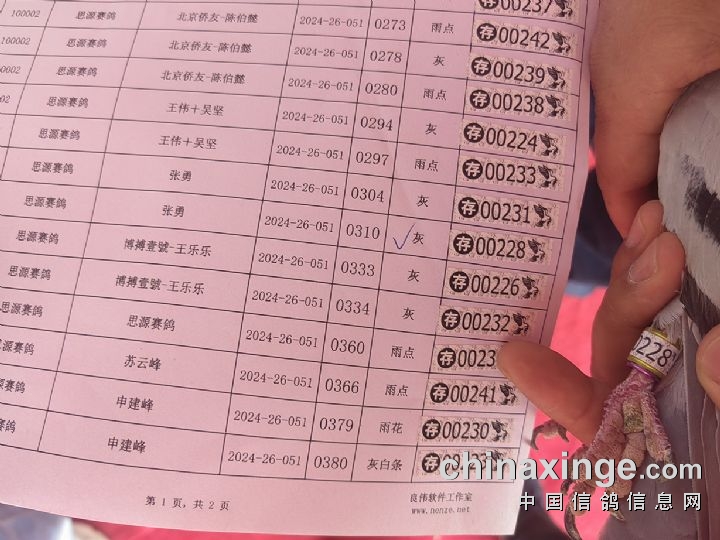 100002 思源赛鸽 北京侨友-陈伯懿 2024-26-051 0273 雨点 存00242
100002 思源赛鸽 北京侨友-陈伯懿 2024-26-051 0278 灰 存00239
0002 思源赛鸽 北京侨友-陈伯懿 2024-26-051 0280 雨点 存00238
02 思源赛鸽 王伟+吴坚 2024-26-051 0294 灰 存00224
思源赛鸽 王伟+吴坚 2024-26-051 0297 雨点 存00233
思源赛鸽 张勇 2024-26-051 0304 灰 存00231
思源赛鸽 张勇 2024-26-051 0310 灰 存00228
思源赛鸽 博搏壹號-王乐乐 2024-26-051 0333 灰 存00226
思源赛鸽 博搏壹號-王乐乐 2024-26-051 0334 灰 存00232
思源赛鸽 思源赛鸽 2024-26-051 0360 雨点 存0023
思源赛鸽 苏云峰 2024-26-051 0366 雨点 存00241
源赛鸽 申建峰 2024-26-051 0379 雨花 存00230
赛鸽 申建峰 2024-26-051 0380 灰白条 存
第 1 页, 共 2 页
良伟软件工作室
www.nonze.net
00237
0228
chinaxinge.com
中国信鸽信息网